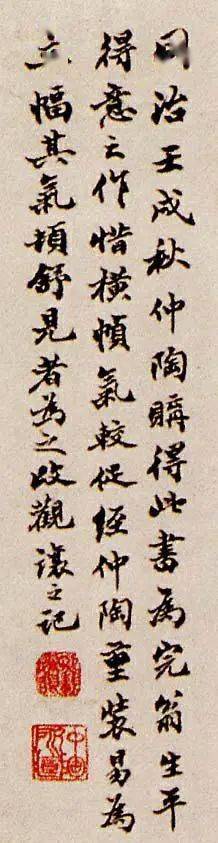 同治壬戌秋仲陶購得此書為完翁生平
得意之作惜橫幀氣較促經仲陶重裝易為
六幅其氣頓舒見者為之改觀讓之記